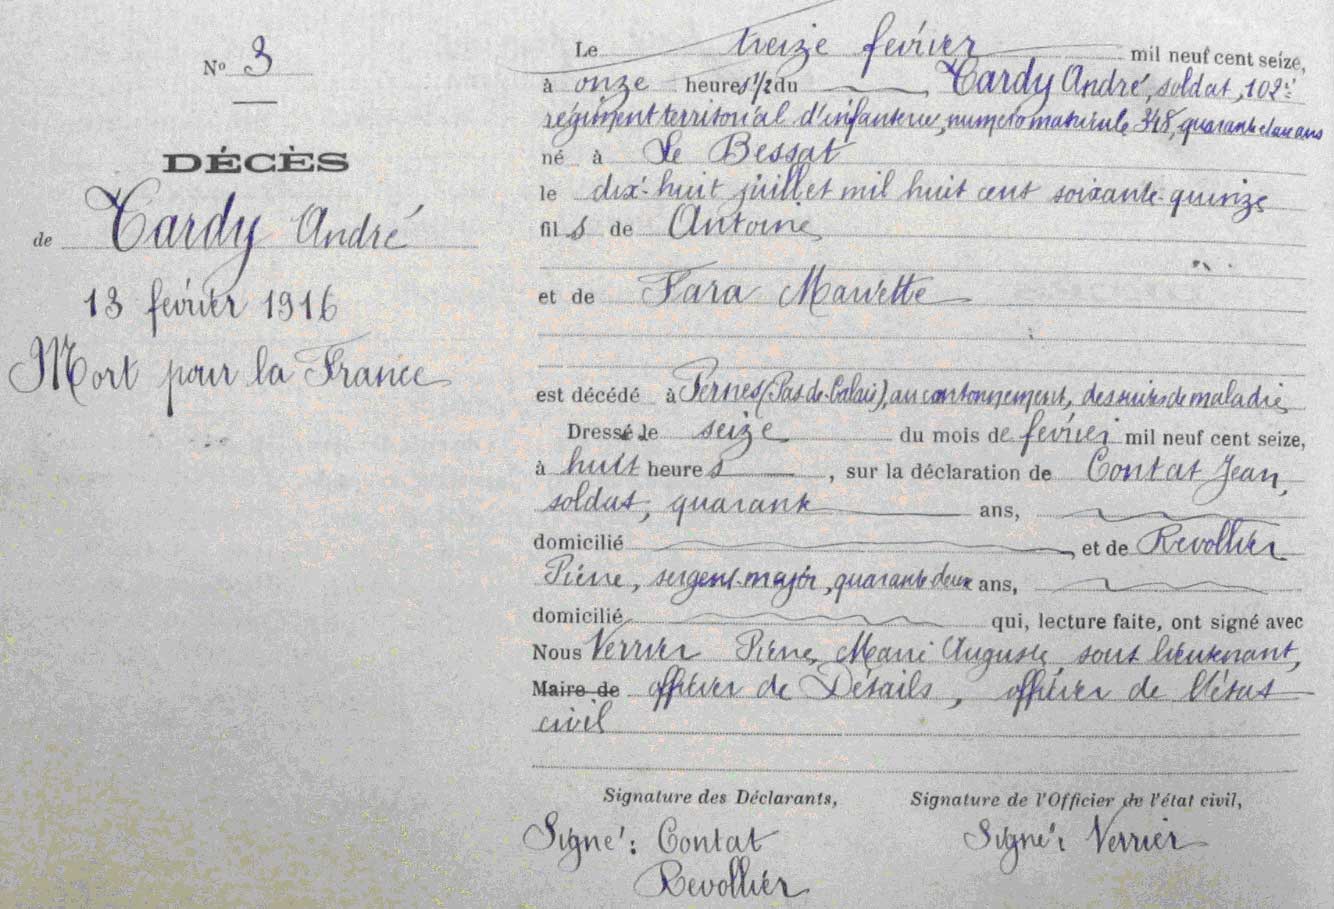 N° 3
DÉCÈS
de Tardy André
13 février 1916
Mort pour la France
Le treize février mil neuf cent seize,
à onze heures 1/2 du Tardy André, soldat, 102e
régiment territorial d'infanterie, numéro matricule 348, quarante ans
né à Le Bessat
le dix-huit juillet mil huit cent soixante-quinze
fils de Antoine
et de Fara Mariette
est décédé à Pernes (Pas-de-Calais), au cantonnement, des suites de maladie
Dressé le seize du mois de février mil neuf cent seize,
à huit heures, sur la déclaration de Contat Jean,
soldat, quarante ans,
domicilié , et de Revollier
Pierre, sergent-major, quarante deux ans,
domicilié qui, lecture faite, ont signé avec
Nous Verrier Pierre, Marie Auguste, sous lieutenant,
Maire de officier de Détails, officier de l'état
civil
Signature des Déclarants,
Signature de l'Officier de l'état civil,
Signé : Contat
Revollier
Signé : Verrier